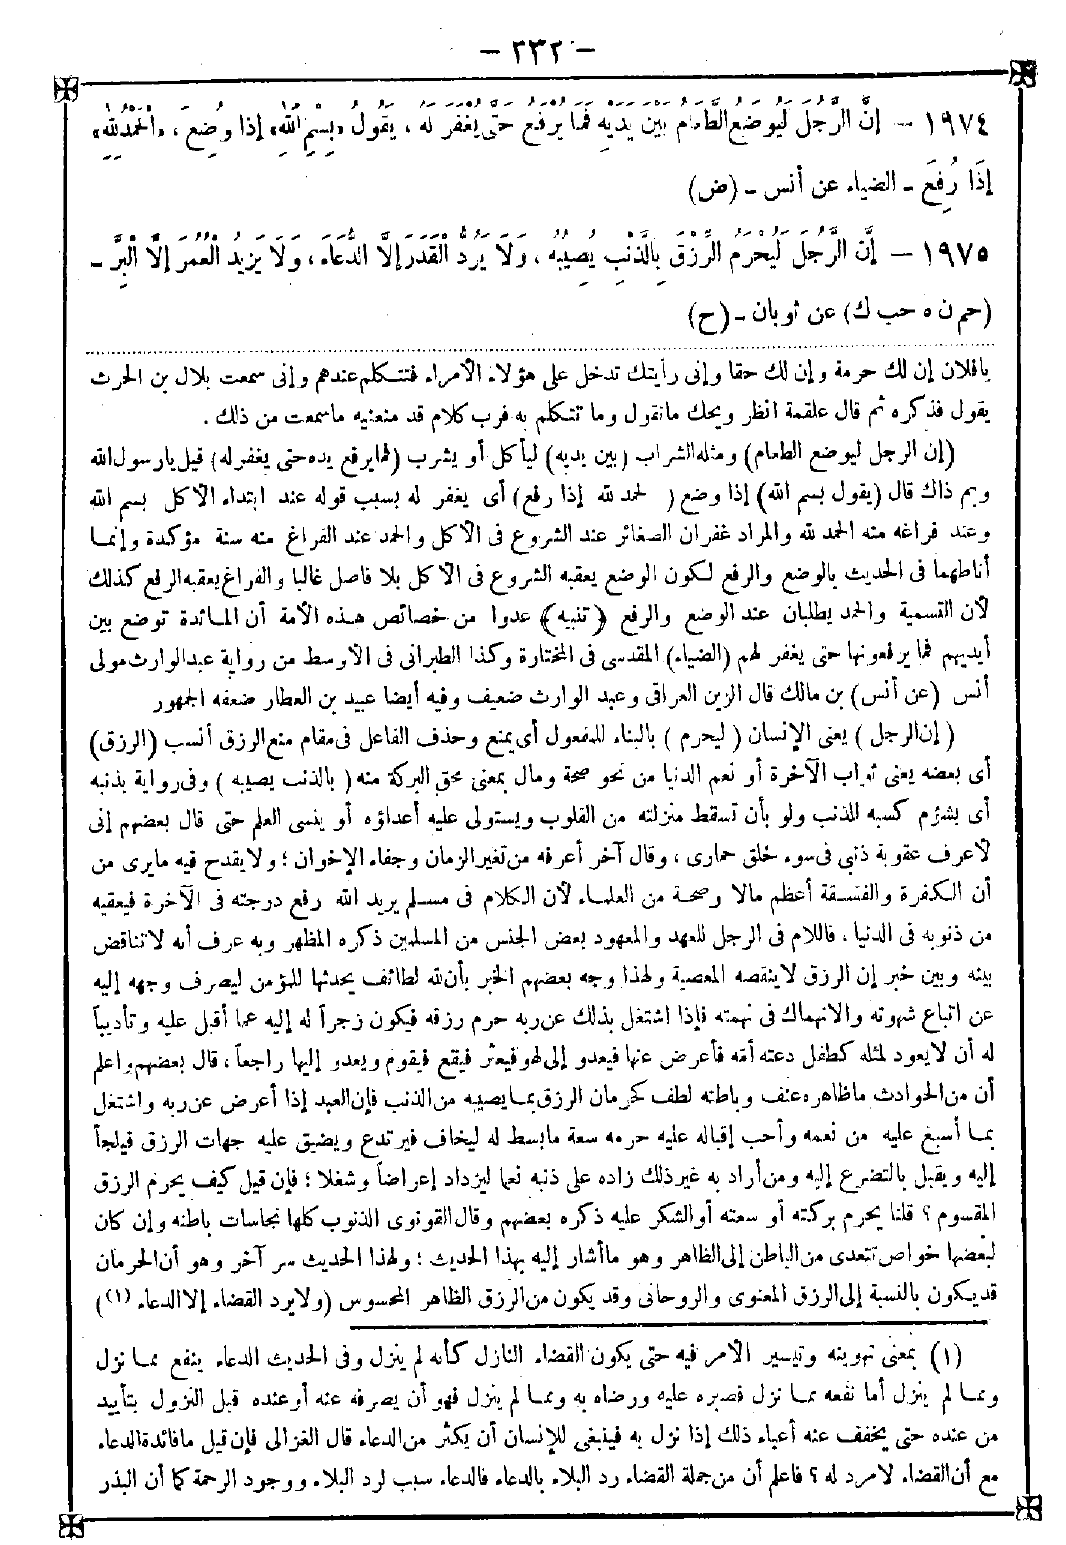 – ٢٣٢ –
١٩٧٤ – إِنَّ الرَّجُلَ لَيُوضَعُ الطَّعَامُ بَيْنَ يَدَيْهِ فَمَا يُرْفَعُ حَتَّى يُغْفَرَ لَهُ، يَقُولُ «بِسْمِ اللهِ» إِذَا وُضِعَ، «الْحَمْدُ لِلهِ»
إِذَا رُفِعَ – الضياء عن أنس – (ض)
١٩٧٥ – إِنَّ الرَّجُلَ لَيُحْرَمُ الرِّزْقَ بِالذَّنْبِ يُصِيبُهُ، وَلَا يَرُدُّ الْقَدَرَ إِلَّا الدُّعَاءُ، وَلَا يَزِيدُ الْعُمُرَ إِلَّا الْبِرُّ –
(حم ن ه حب ك) عن ثوبان – (ح)
يافلان إن لك حرمة وإن لك حقا وإنى رأيتك تدخل على هؤلاء الأمراء فتتكلم عندهم وإنى سمعت بلال بن الحرث
يقول فذكره ثم قال علقمة انظر ويحك ماتقول وما تتكلم به فرب كلام قد منعنيه ماسمعت من ذلك .
(إن الرجل ليوضع الطعام) ومثله الشراب (بين يديه) ليأكل أو يشرب (فما يرفع يده حتى يغفر له) قيل يارسول الله
وبم ذاك قال (يقول بسم الله) إذا وضع ( لحمد لله إذا رفع) أى يغفر له بسبب قوله عند ابتداء الأكل بسم الله
وعند فراغه منه الحمد لله والمراد غفران الصغائر عند الشروع فى الأكل والحمد عند الفراغ منه سنة مؤكدة وإنما
أناطهما فى الحديث بالوضع والرفع لكون الوضع يعقبه الشروع فى الأكل بلا فاصل غالبا والفراغ يعقبه الرفع كذلك
لأن التسمية والحمد يطلبان عند الوضع والرفع (تنبيه) عدوا من خصائص هذه الأمة أن المائدة توضع بين
أيديهم فما يرفعونها حتى يغفر لهم (الضياء) المقدسى فى المختارة وكذا الطبرانى فى الأوسط من رواية عبدالوارث مولى
أنس (عن أنس) بن مالك قال الزين العراقى وعبد الوارث ضعيف وفيه أيضا عبيد بن العطار ضعفه الجمهور
(إن الرجل) يعنى الإنسان (ليحرم) بالبناء للمفعول أى يمنع وحذف الفاعل فى مقام منع الرزق أنسب (الرزق)
أى بعضه يعنى ثواب الآخرة أو نعم الدنيا من نحو صحة ومال بمعنى محق البركة منه (بالذنب يصيبه) وفى رواية بذنبه
أى بشؤم كسبه للذنب ولو بأن تسقط منزلته من القلوب ويستولى عليه أعداؤه أو ينسى العلم حتى قال بعضهم إنى
لأعرف عقوبة ذنبى فى سوء خلق حمارى ، وقال آخر أعرفه من تغير الزمان وجفاء الإخوان ؛ ولايقدح فيه مايرى من
أن الكفرة والفسقة أعظم مالا وصحة من العلماء لأن الكلام فى مسلم يريد الله رفع درجته فى الآخرة فيعقبه
من ذنوبه فى الدنيا ، فاللام فى الرجل للعهد والمعهود بعض الجنس من المسلمين ذكره المظهر وبه عرف أنه لاتناقض
بينه وبين خبر إن الرزق لاينقصه المعصية ولهذا وجه بعضهم الخبر بأن لله لطائف يحدثها للمؤمن ليصرف وجهه إليه
عن اتباع شهوته والانهماك فى نهمته فإذا اشتغل بذلك عن ربه حرم رزقه فيكون زجراً له إليه عما أقبل عليه وتأديباً
له أن لايعود لمثله كطفل دعته أمه فأعرض عنها فيعدو إلى لهو فيعثر فيقع فيقوم ويعدو إليها راجعاً ، قال بعضهم واعلم
أن من الحوادث ماظاهره عنف وباطنه لطف كحرمان الرزق بما يصيبه من الذنب فإن العبد إذا أعرض عن ربه واشتغل
بما أسبغ عليه من نعمه وأحب إقباله عليه حرمه سعة مابسط له ليخاف فيرتدع ويضيق عليه جهات الرزق فيلجأ
إليه ويقبل بالتضرع إليه ومن أراد به غير ذلك زاده على ذنبه نعما ليزداد إعراضاً وشغلا ؛ فإن قيل كيف يحرم الرزق
المقسوم ؟ قلنا يحرم بركته أو سعته أو الشكر عليه ذكره بعضهم وقال القونوى الذنوب كلها نجاسات باطنه وإن كان
لبعضها خواص تتعدى من الباطن إلى الظاهر وهو ماأشار إليه بهذا الحديث ؛ ولهذا الحديث سر آخر وهو أن الحرمان
قد يكون بالنسبة إلى الرزق المعنوى والروحانى وقد يكون من الرزق الظاهر المحسوس (ولايرد القضاء إلا الدعاء (١))
(١) بمعنى تهوينه وتيسير الأمر فيه حتى يكون القضاء النازل كأنه لم ينزل وفى الحديث الدعاء ينفع مما نزل
ومما لم ينزل أما نفعه مما نزل فصبره عليه ورضاه به ومما لم ينزل فهو أن يصرفه عنه أوعنده قبل النزول بتأييد
من عنده حتى يخفف عنه أعباء ذلك إذا نزل به فينبغى للإنسان أن يكثر من الدعاء قال الغزالى فإن قيل مافائدة الدعاء
مع أن القضاء لامرد له ؟ فاعلم أن من جملة القضاء رد البلاء بالدعاء فالدعاء سبب لرد البلاء ووجود الرحمة كما أن البذر